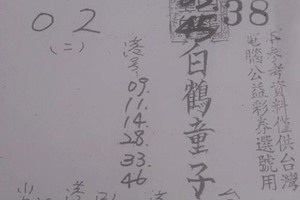 38
不參考資料僅供台灣
電腦公益彩券選號用
白鶴童子
02
(二)
港号
09.
11.
14.
28.
33.
46